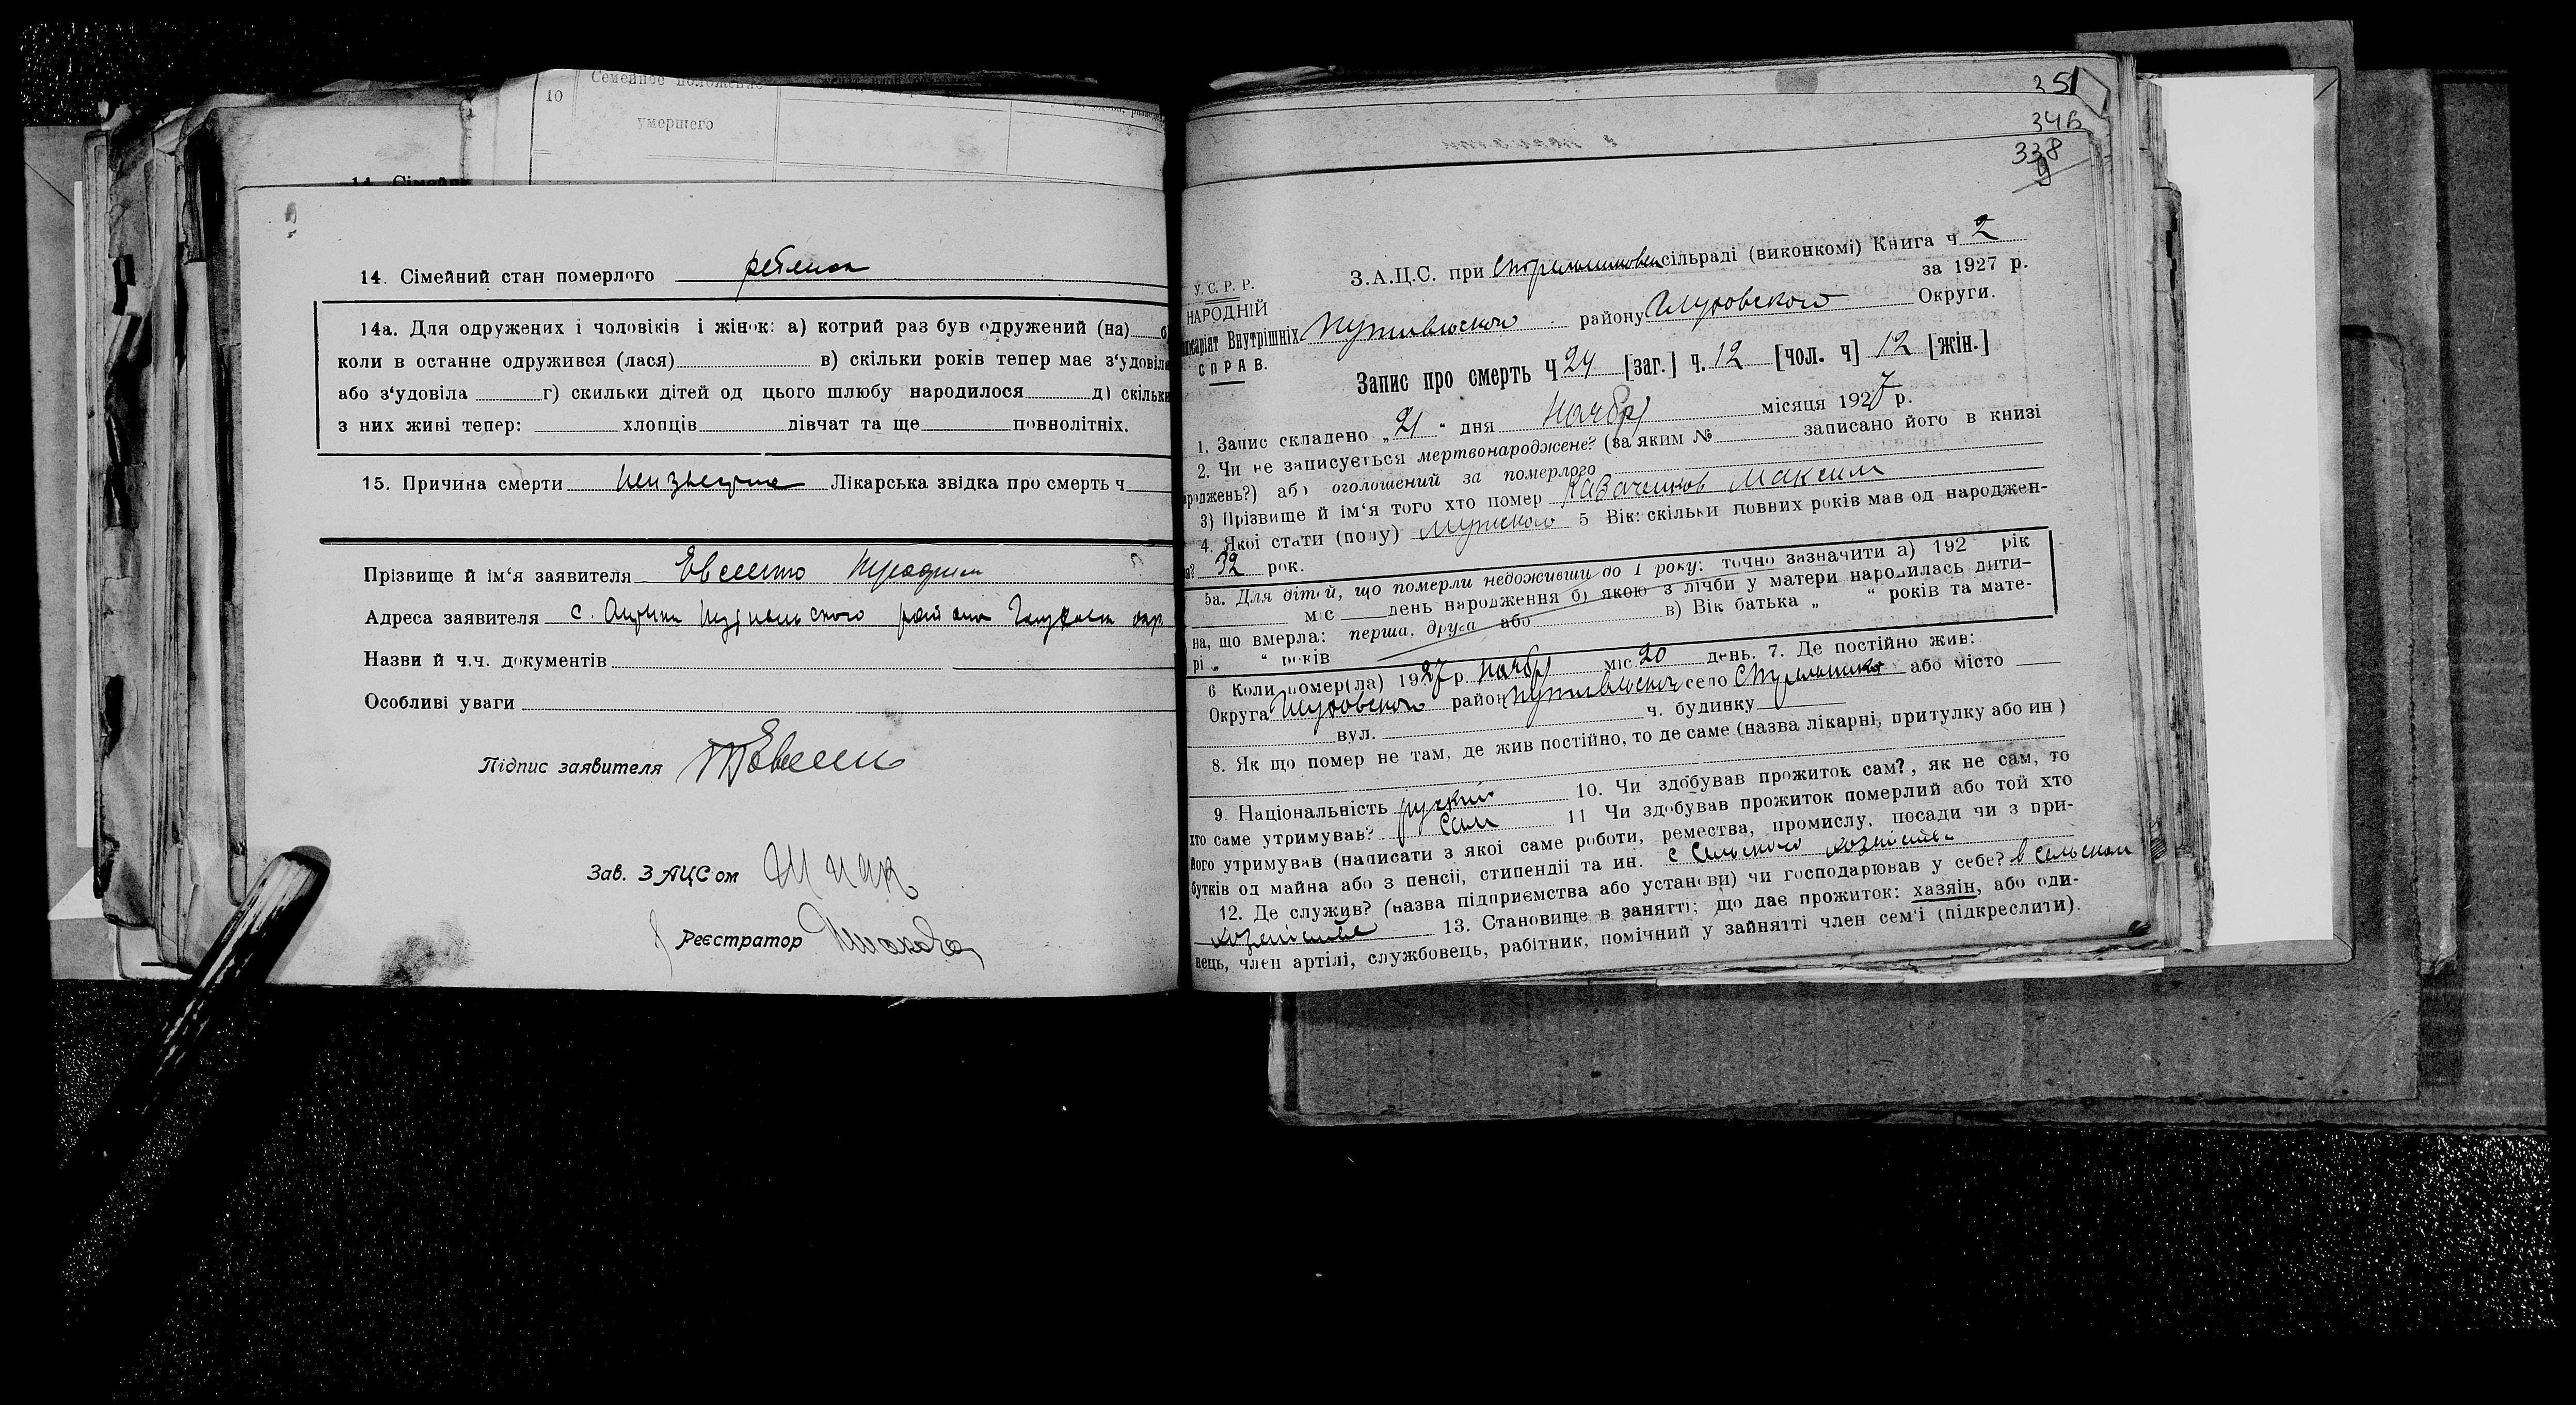 10
Семейное положение
умершего
14. Сімейний стан померлого ребенок
14а. Для одружених і чоловіків і жінок: а) котрий раз був одружений (на)
коли в останнє одружився (лася) в) скільки років тепер має з'удовіла
або з'удовіла г) скильки дітей од цього шлюбу народилося д) скільки
з них живі тепер: хлопців дівчат та ще повнолітніх.
15. Причина смерти Лікарська звідка про смерть ч
Прізвище й ім'я заявителя
Адреса заявителя с. района
Назви й ч.ч. документів
Особливі уваги
Підпис заявителя
Зав. ЗАЦСом
Реєстратор
251
338
9
У.С.Р.Р.
НАРОДНІЙ
Внутрішніх
СПРАВ.
З.А.Ц.С. при сільраді (виконкомі) Книга ч 2
за 1927 р.
Путивльского району Глуховского Округи.
Запис про смерть Ч 24 [заг.] ч. 12 [чол. ч] 12 [жін.]
1. Запис складено „21" дня Ноябр місяця 1927 р.
2. Чи не записується мертвонароджене? (за яким № записано його в книзі
роджень?) або оголошений за померлого
3) Прізвище й ім'я того хто помер Максим
4. Якої стати (полу) Мужского 5 Вік: скільки повних років мав од народжен-
32 рок.
5а. Для дітей, що померли недоживши до 1 року: точно зазначити а) 192 рік
міс день народження б) якою з лічби у матери народилась дити-
на, що вмерла: перша, друга або в) Вік батька „ " років та мате-
рі „ " років
6 Коли помер(ла) 1927 р. Ноябр міс 20 день. 7. Де постійно жив:
Округа Глуховского район Путивльского село або місто
вул. ч. будинку
8. Як що помер не там, де жив постійно, то де саме (назва лікарні, притулку або ин)
9. Національність руский 10. Чи здобував прожиток сам?, як не сам, то
хто саме утримував? Сам 11 Чи здобував прожиток померлий або той хто
його утримував (написати з якої саме роботи, ремества, промислу, посади чи з при-
бутків од майна або з пенсії, стипендії та ин. с Сельского
12. Де служив? (назва підприємства або установи) чи господарював у себе? в сельском
13. Становище в занятті; що дає прожиток: хазяін, або оди-
нець, член артілі, службовець, рабітник, помічний у зайнятті член сем'ї (підкреслити).